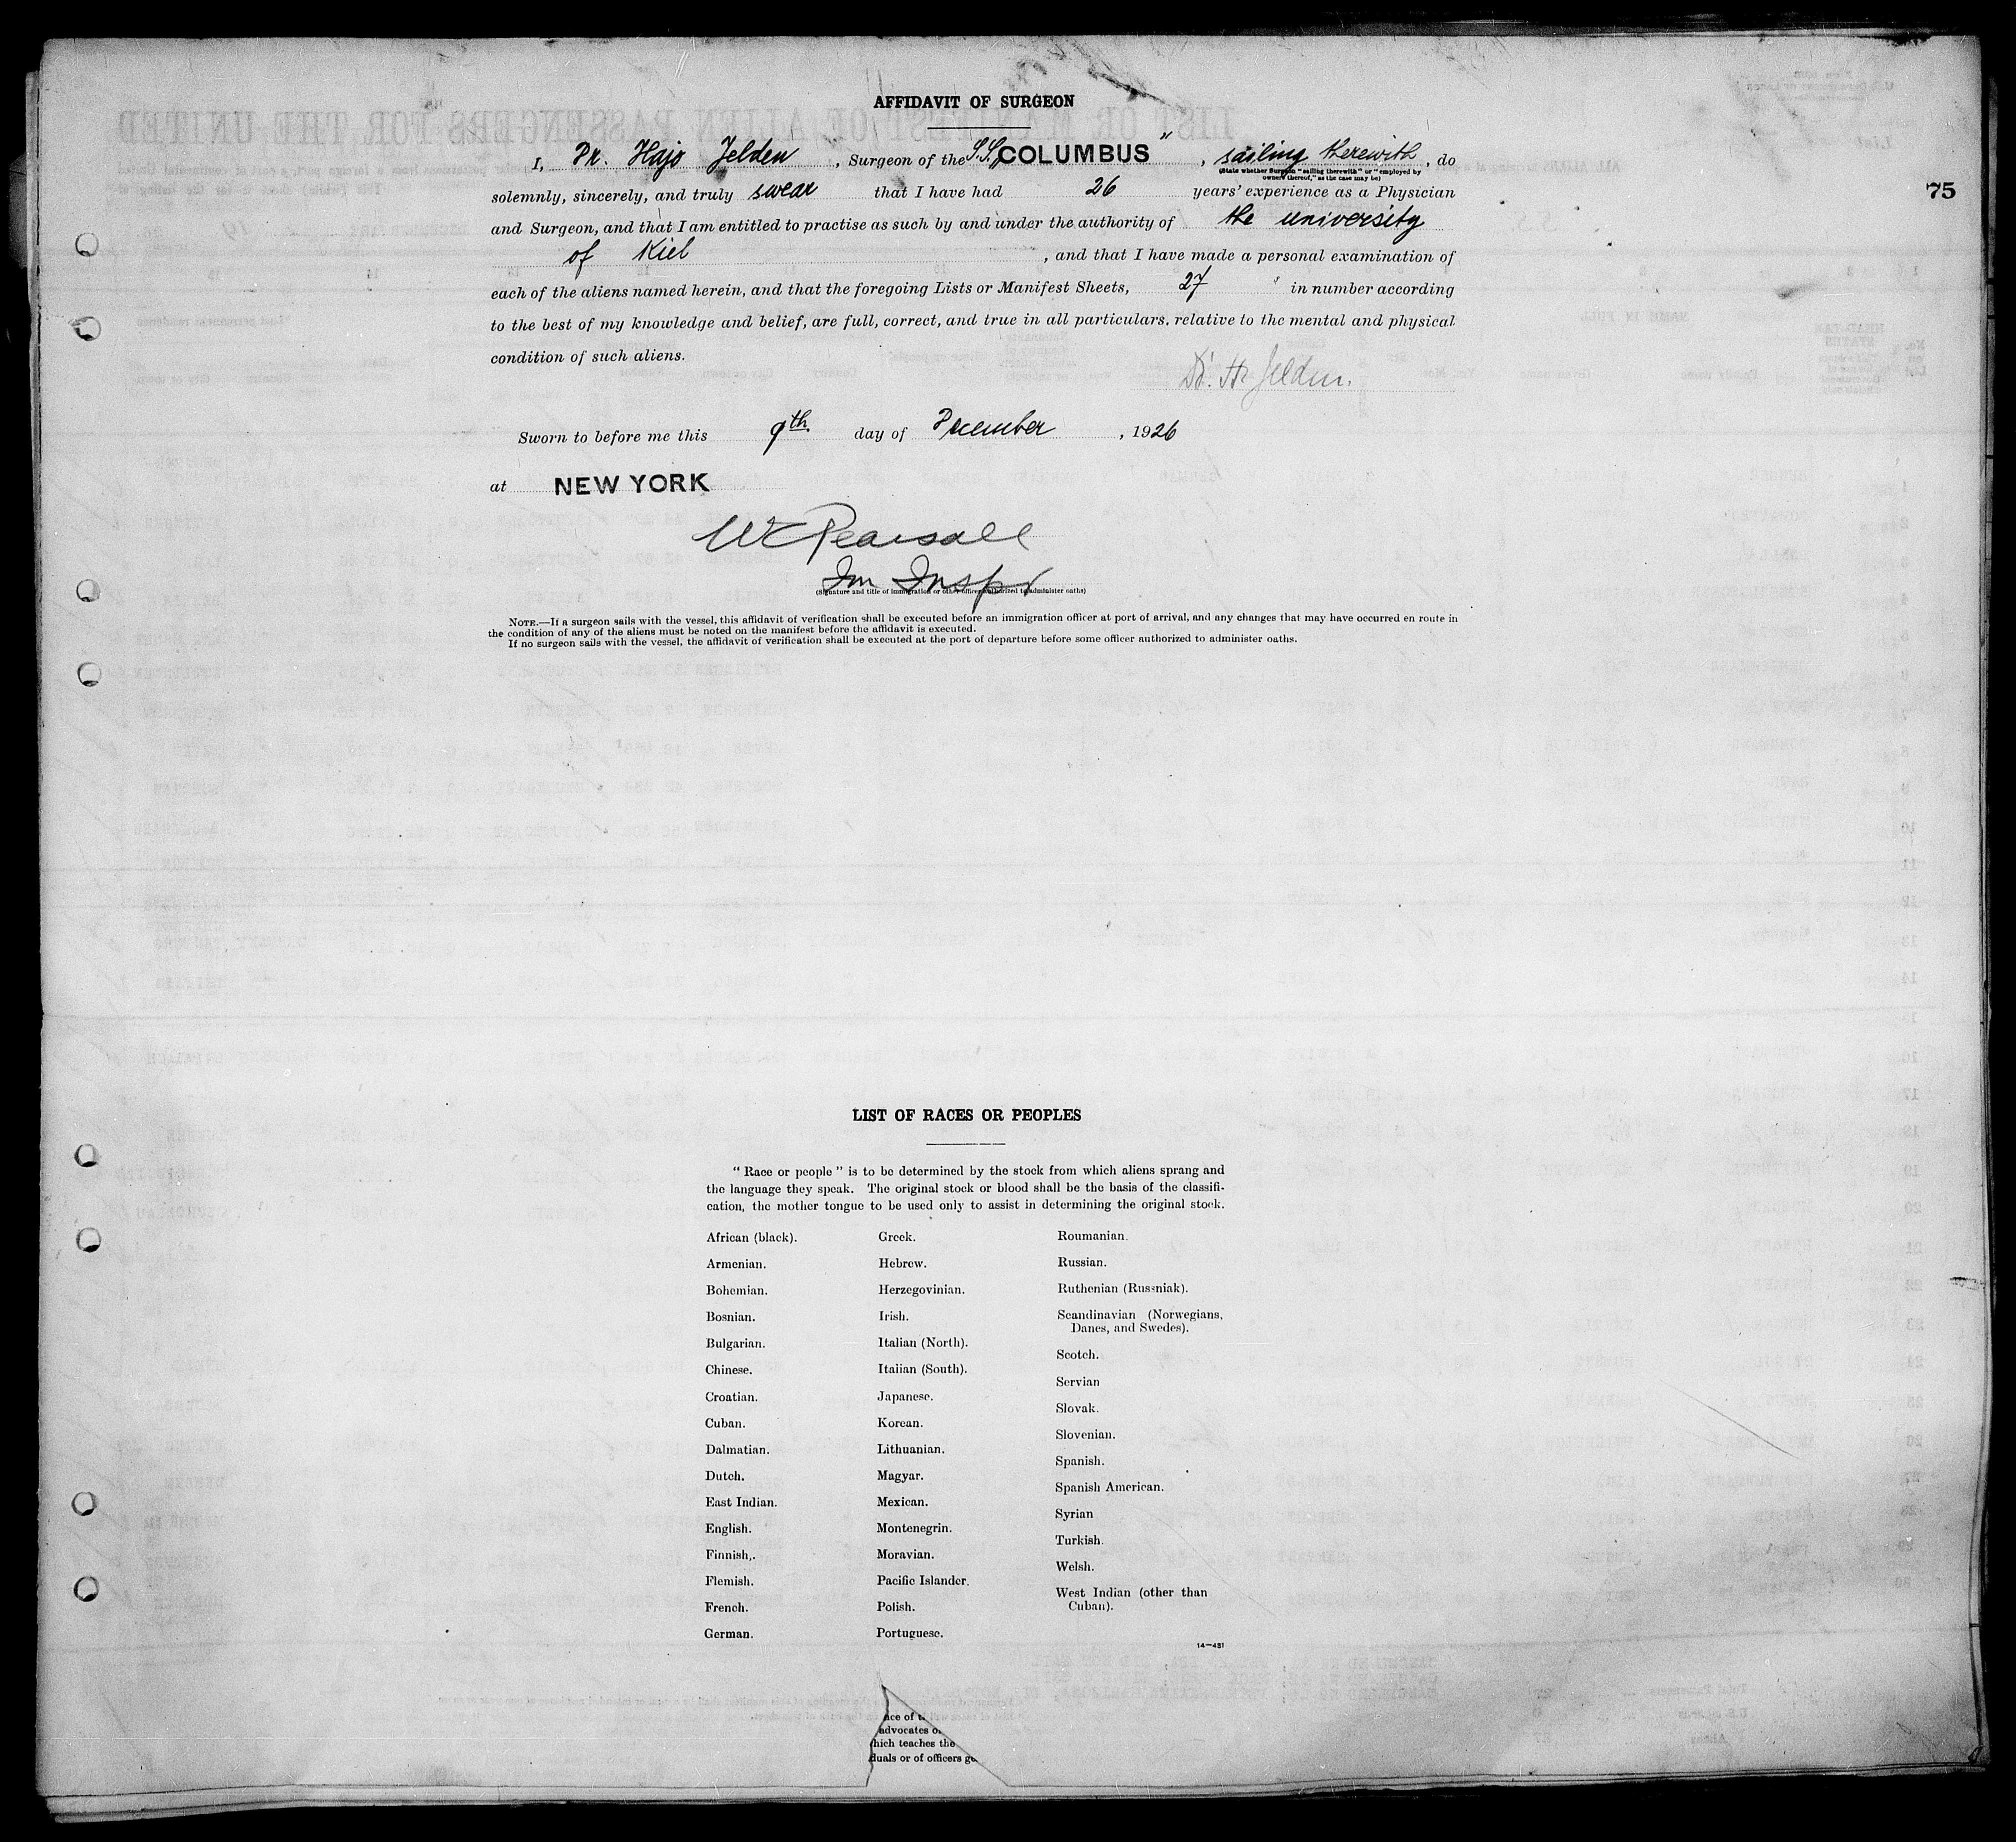 AFFIDAVIT OF SURGEON
75
I, Dr. Hajo Jelden, Surgeon of the S.S. "COLUMBUS", sailing therewith, do
(State whether Surgeon "sailing therewith" or "employed by
owners thereof," as the case may be)
solemnly, sincerely, and truly swear that I have had 26 years' experience as a Physician
and Surgeon, and that I am entitled to practise as such by and under the authority of the university
of Kiel, and that I have made a personal examination of
each of the aliens named herein, and that the foregoing Lists or Manifest Sheets, 27 in number according
to the best of my knowledge and belief, are full, correct, and true in all particulars, relative to the mental and physical
condition of such aliens.
Dr. H. Jelden.
Sworn to before me this 9th day of December, 1926
at NEW YORK
Pearsall
Im Inspr
(Signature and title of immigration or other officer authorized to administer oaths)
NOTE.—If a surgeon sails with the vessel, this affidavit of verification shall be executed before an immigration officer at port of arrival, and any changes that may have occurred en route in
the condition of any of the aliens must be noted on the manifest before the affidavit is executed.
If no surgeon sails with the vessel, the affidavit of verification shall be executed at the port of departure before some officer authorized to administer oaths.
LIST OF RACES OR PEOPLES
"Race or people" is to be determined by the stock from which aliens sprang and
the language they speak. The original stock or blood shall be the basis of the classifi-
cation, the mother tongue to be used only to assist in determining the original stock.
African (black).
Armenian.
Bohemian.
Bosnian.
Bulgarian.
Chinese.
Croatian.
Cuban.
Dalmatian.
Dutch.
East Indian.
English.
Finnish.
Flemish.
French.
German.
Greek.
Hebrew.
Herzegovinian.
Irish.
Italian (North).
Italian (South).
Japanese.
Korean.
Lithuanian.
Magyar.
Mexican.
Montenegrin.
Moravian.
Pacific Islander.
Polish.
Portuguese.
Roumanian.
Russian.
Ruthenian (Russniak).
Scandinavian (Norwegians,
Danes, and Swedes).
Scotch.
Servian
Slovak.
Slovenian.
Spanish.
Spanish American.
Syrian
Turkish.
Welsh.
West Indian (other than
Cuban).
14—431
ace of t
advocates o
hich teaches the
duals or of officers ge